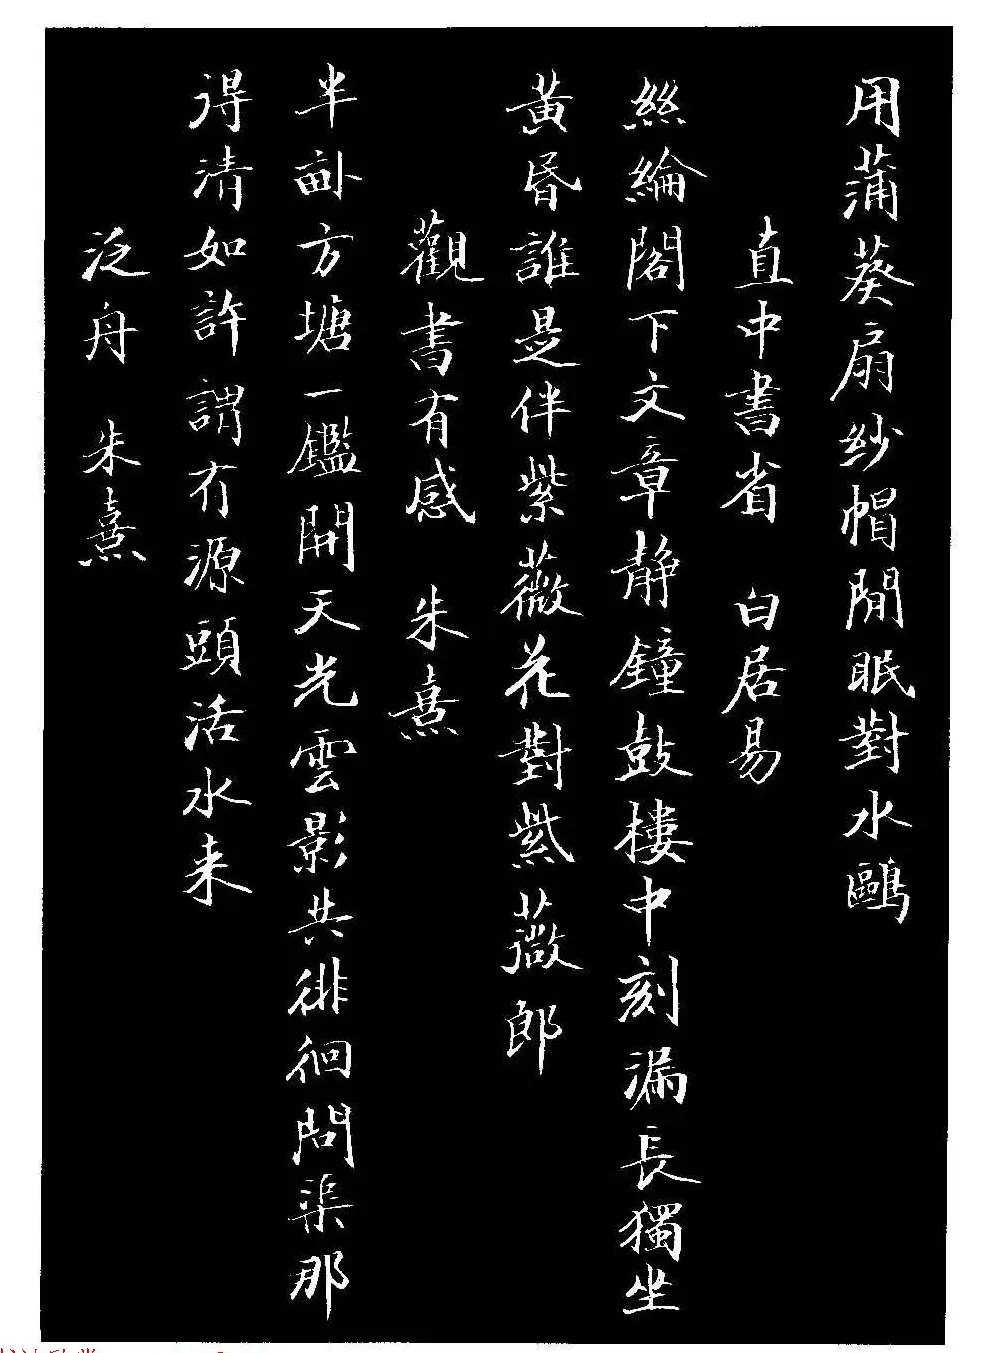 用蒲葵扇紗帽閒眠對水鷗
直中書省 白居易
絲綸閣下文章靜鐘鼓樓中刻漏長獨坐
黃昏誰是伴紫薇花對紫薇郎
觀書有感 朱熹
半畝方塘一鑑開天光雲影共徘徊問渠那
得清如許謂有源頭活水来
泛舟 朱熹